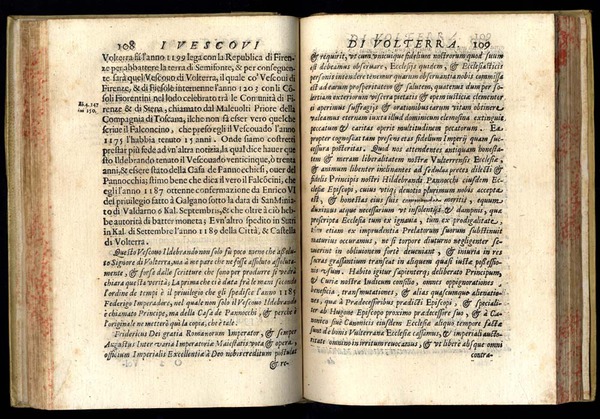 108 I VESCOVI
Volterra fù l'anno 1199 lega con la Republica di Firen-
ze per abbattere la terra di Semifonte, & per conseguen-
te sarà quel Vescouo di Volterra, il quale co' Vescoui di
Firenze, & di Fiesole interuenne l'anno 1203 con li Cõ-
soli Fiorentini nel lodo celebrato trà le Comunità di Fi-
renze & di Siena, chiamato dal Maleuolti Priore della
Compagnia di Toscana, il che non sà esser vero quel che
scriue il Falconcino, che preso egli il Vescouado l'anno
1175 l'habbia tenuto 15 anni. Onde siamo costretti
prestar più fede ad vn'altra notizia, la qual dice hauer que
sto Ildebrando tenuto il Vescouado venticinque, ò trenta
anni, & essere stato della Casa de Pannocchiesi, ouer del
Pannocchia; stimo bene che dica il vero il Falcõcini, che
egli l'anno 1187 ottenne confermazione da Enrico VI
del priuilegio fatto à Galgano sotto la data di San Minia-
to di Valdarno 6 Kal. Septembris, & che oltre à ciò heb-
be autorità di batter moneta; E vn'altro spedito in Sutri
in Kal. di Settembre l'anno 1189 della Città, & Castella
di Volterra.
Questo Vescouo Ildebrando non solo fù poco meno che assolu-
to Signore di Volterra, ma à me pare che ne fusse assoluto assoluta-
mente, & forse dalle scritture che sono per produrre si vedrà
chiara questa verità; La prima che ci è data frà le mani secondo
l'ordine de tempi è il priuilegio che gli spedisce l'anno 1185
Federigo Imperadore, nel quale non solo il Vescouo Ildebrando
è chiamato Principe, ma della Casa de Pannocchi, & perche è
l'originale ne metterò quì la copia, che è tale:
Fridericus Dei gratia Romanorum Imperator, & semper
Augustus Inter varia Imperatoriæ Maiestatis vota & opera,
officium Imperialis Excellentiæ à Deo nobis creditum postulat
& re-
DI VOLTERRA. 109
& requirit, vt cum vnicuique fidelium nostrorum quod suum
est debeamus obseruare, Ecclesijs quidem, & Ecclesiasticis
personis intendere tenemur quarum obseruantia nobis commissa
est ad earum prosperitatem & salutem, quatenus dum per so-
lertiam exteriorum vescra tractatis & opem iustitia clementer
aperimus suffragijs & orationibus earum vitam obtinere
valeamus eternam iuxta illud dominicum elemosina extinguit
peccatum & caritas operit multitudinem peccatorum. Ea
propter cognoscat tam presens etas fidelium Imperij quam suc-
cessura posteritas. Quod nos attendentes antiquam hones-
tatem & meram liberalitatem nostræ Vulterrensis Ecclesiæ, &
animum libenter inclinantes ad sedulas preces dilecti &
fidelis Principis nostri Hildebrandi Pannocchi eiusdem Ec-
clesiæ Episcopi, cuius vtiq; deuotio plurimum nobis accepta
est, & honestas eius suis commendatur meritis, equum
duximus atque necessarium vt insolentijs & dampnis, qua
prescripta Ecclesia prodigue & ignauia, tum ex prodigalitate,
tum etiam ex imprudentia Prelatorum suorum substinuit
maturius occuramus, ne si torpore diuturno negligenter se-
uerint in obliuionem forte deueniant, & iniuria in res
suras grassantium transeat in aliquem quasi iuste possessio-
nis vsum. Habito igitur sapienterq; deliberato Principum,
& Curia nostra iudicum consilio, omnes oppignorationes,
beneficia, transmutationes, & alias quascumque alienatio-
nes, qua à Prædecessoribus prædicti Episcopi, & speciali-
ter ab Hugone Episcopo proximo prædecessore suo, & à Ca-
nonico siue Canonicis eiusdem Ecclesiæ aliquo tempore facta
sunt de bonis Vulterranæ Ecclesiæ cassamus, & imperiali aucto-
ritate omnino in irritum reuocamus, & vt liberè absque omni
contra-